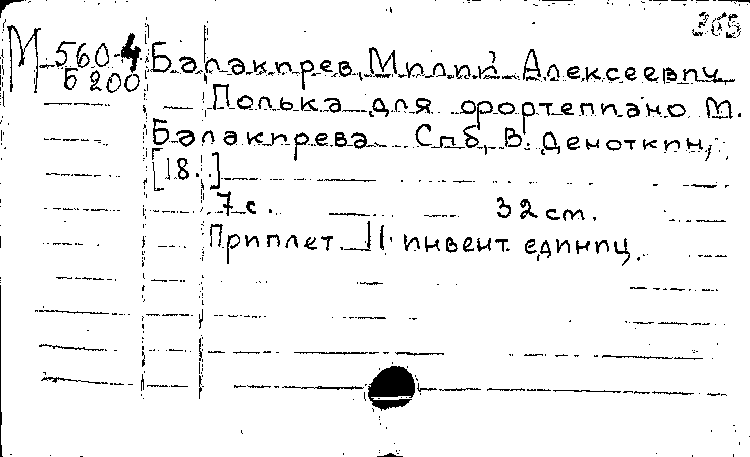 363
М 560-4 Балакирев, Милий Алексеевич
Б 200
Полька для фортепиано М.
Балакирева Спб, В. Деноткин,
[18..]
7 с. 32 см.
Приплет 11 инвент. единиц.